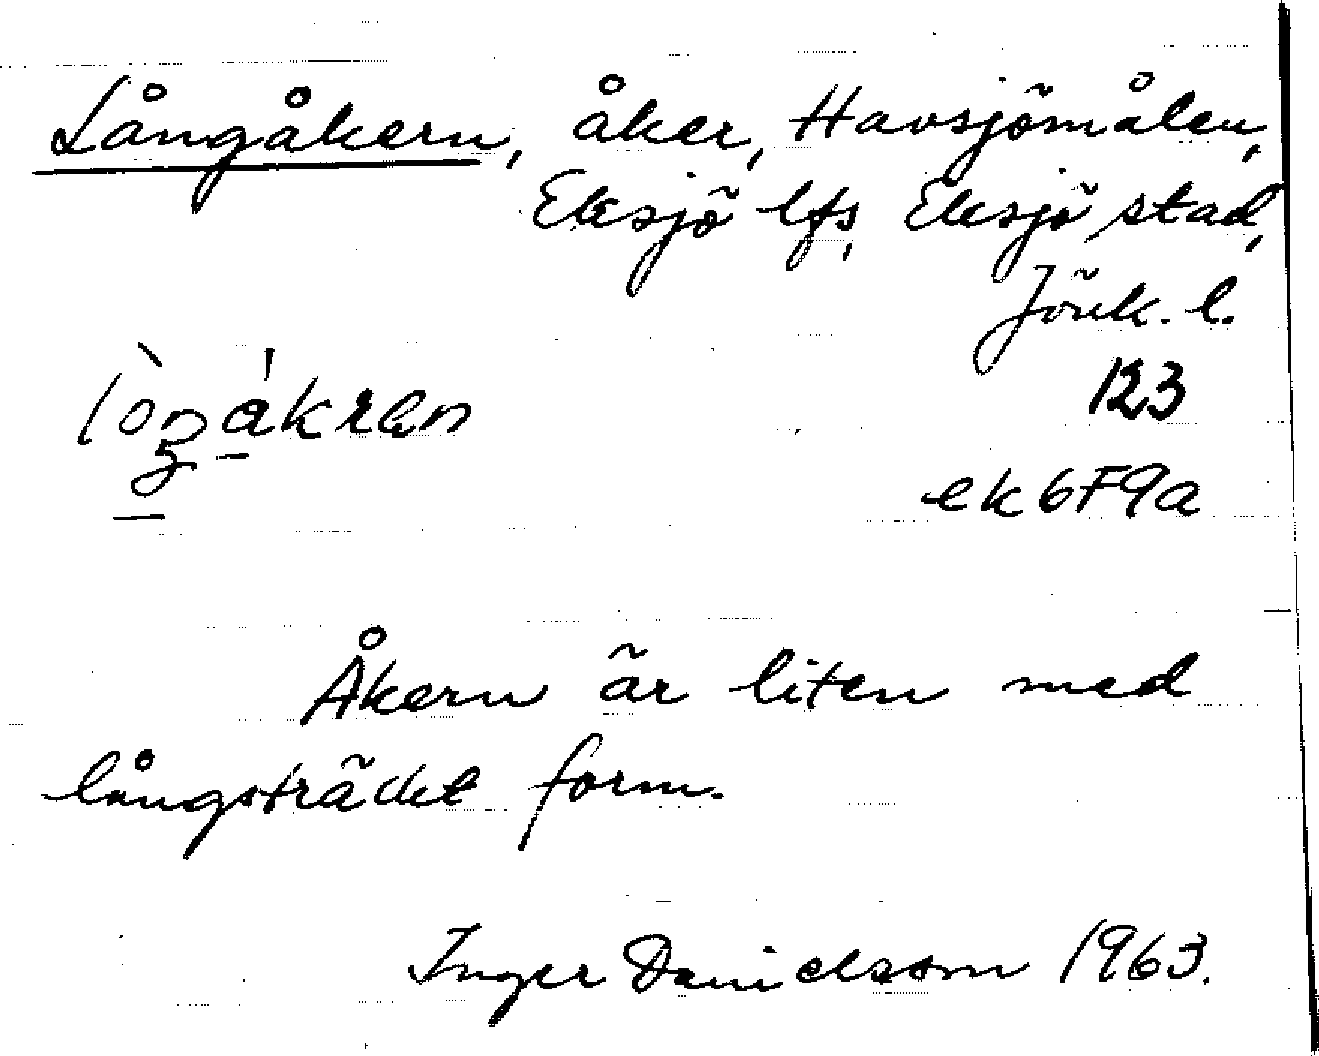 Långåkern, åker, Havsjömålen,
Eksjö lfs, Eksjö stad,
Jönk. l.
lòŋákrən
123
ek6F9a
Åkern är liten med
långsträckt form.
Inger Danielsson 1963.